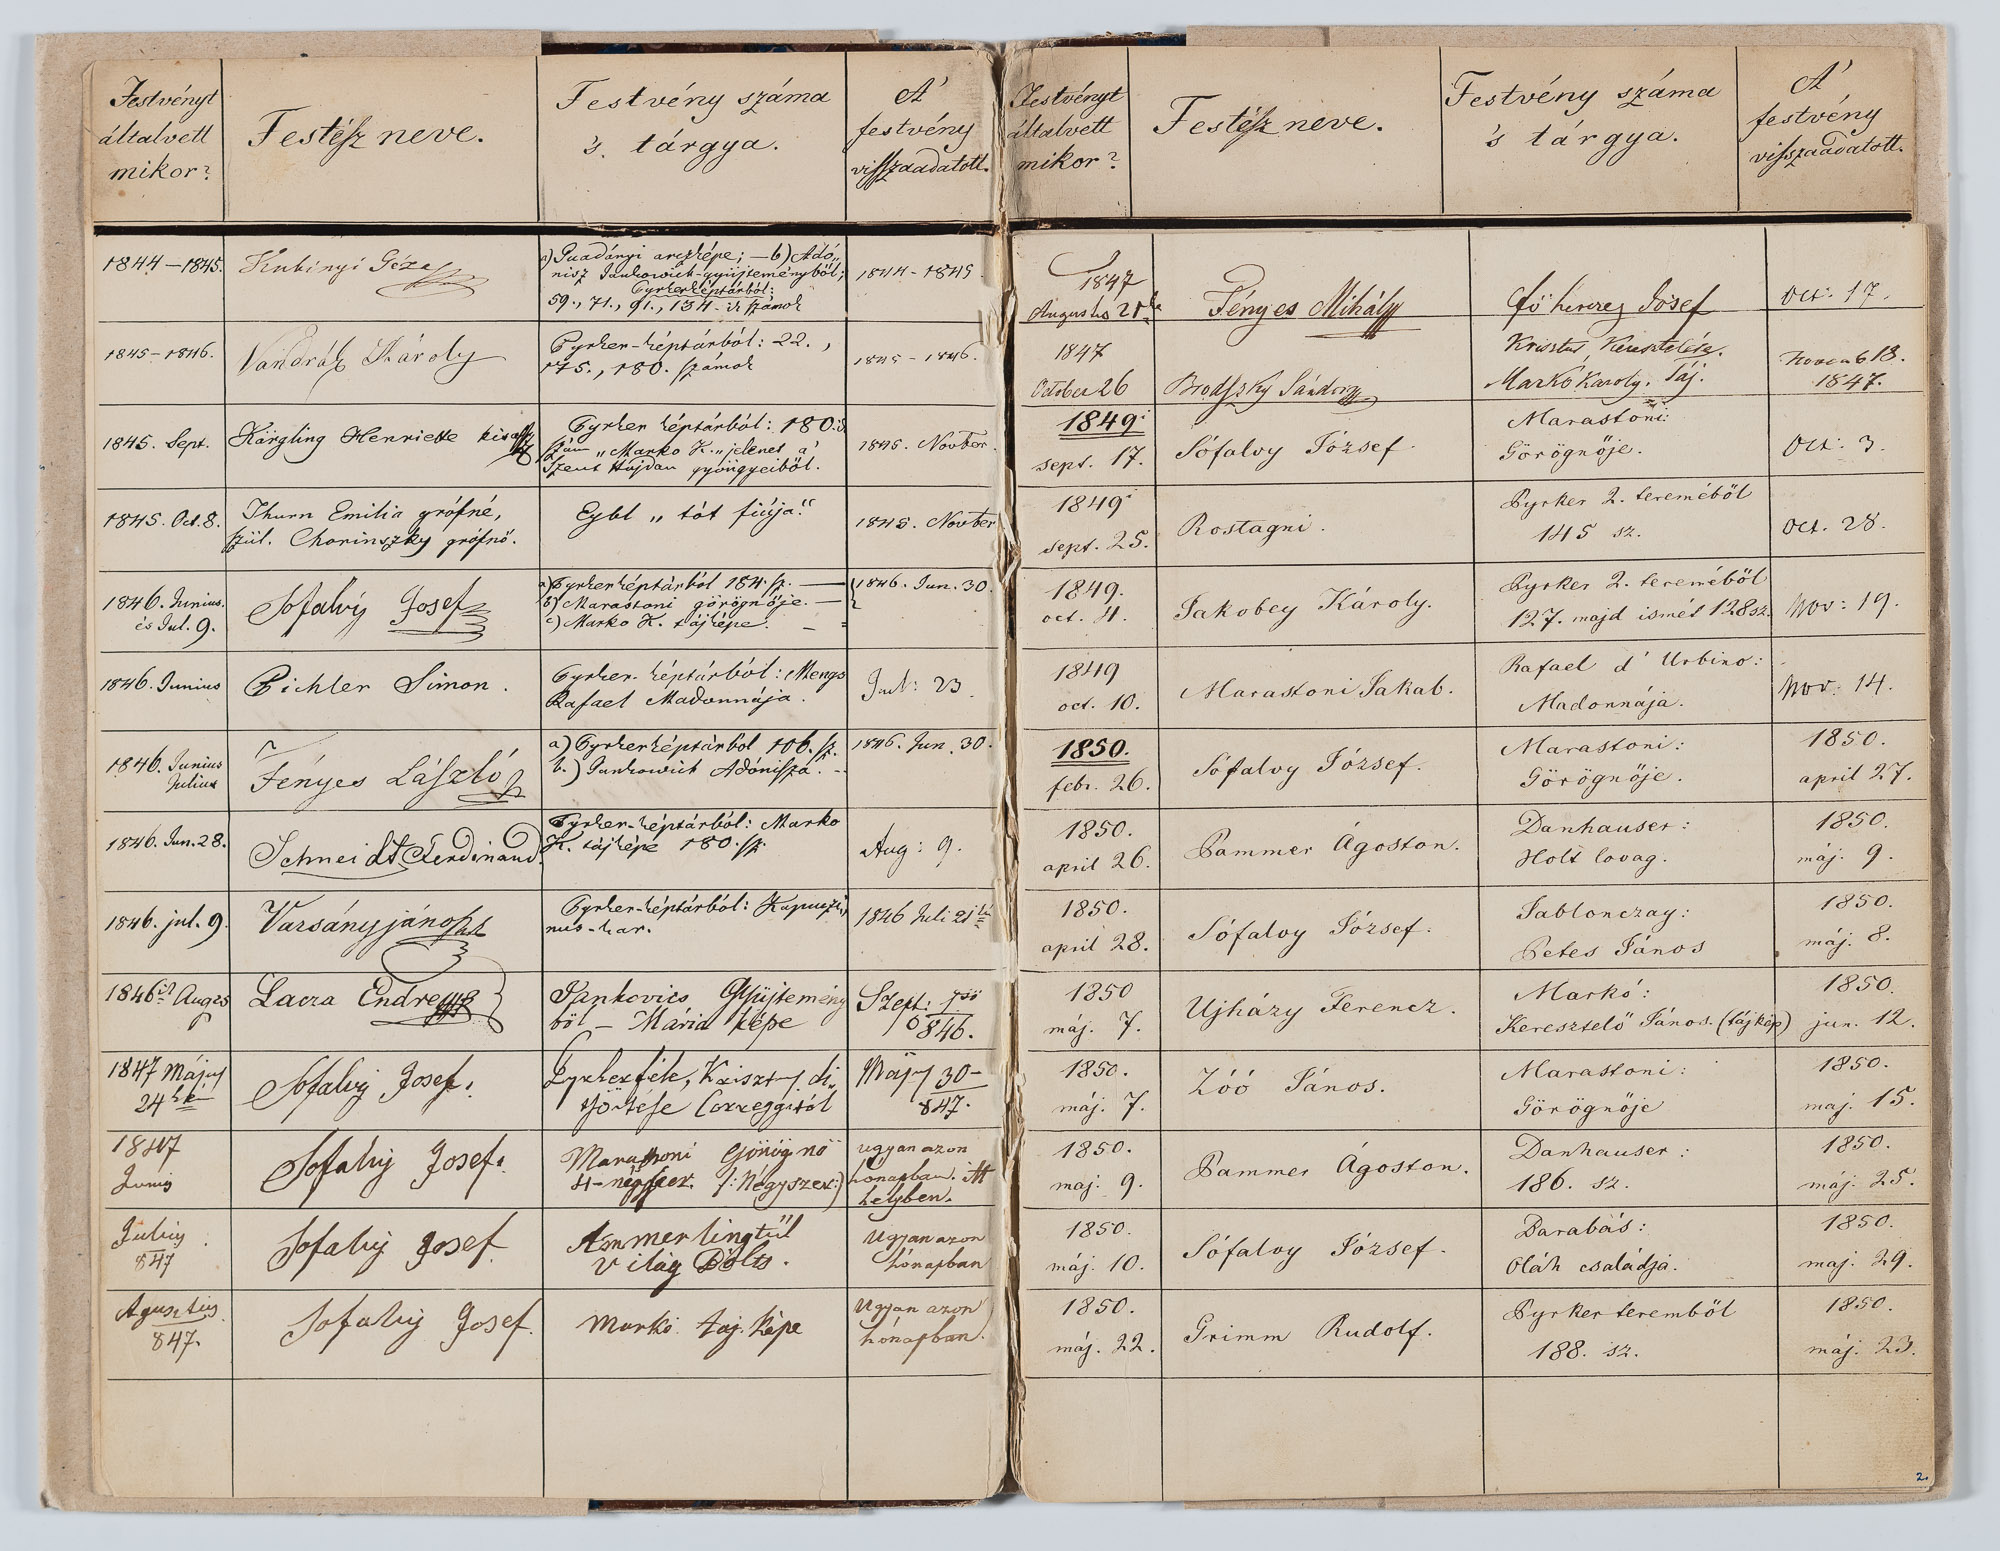 Festvényt
általvett
mikor?
Festész neve.
Festvény száma
's tárgya.
A'
festvény
visszaadatott.
1844–1845.
Kubinyi Géza
a) Guadányi arczképe; – b) Adó„
nisz Jankowich-gyüjteményből;
Pyrkerképtárból:
59., 71., 91., 134. ik számok
1844–1845
1845–1846.
Vandrák Károly
Pyrker-képtárból: 22.,
175., 180. számok
1845–1846.
1845. Sept.
Kärgling Henriette kisassz
Pyrker képtárból: 180.ik
szám „Marko K." jelenet a'
Szent Hajdan gyöngyeiből.
1845. Novber.
1845. Oct. 8.
Thurn Emilia grófné,
szül. Chorinszky grófnő.
Eybl „tót fiúja."
1845. Novber
1846. Junius.
és Jul. 9.
Sofalvÿ Josef
a) Pyrkerképtárból 184. sz.
b) Marastoni görögnője.
c) Marko K. tájképe.
1846. Jun. 30.
1846. Junius
Pichler Simon.
Pyrker-képtárból: Mengs
Rafael Madonnája.
Jul: 23.
1846. Junius
Julius
Fényes László
a) Pyrkerképtárból 106. sz.
b.) Jankowich Adónisza.
1846. Jun. 30.
1846. Jun. 28.
Schneidt Ferdinand.
Pyrker-képtárból: Marko
K. tájképe 180. sz.
Aug: 9.
1846. jul. 9.
Varsányi János
Pyrker-képtárból: Kapuczi„
nus-kar.
1846 Juli 21
1846 Aug 25
Lacza Endre
Jankovics Gyüjtemény
ből – Mária képe
Szept:
846.
1847 Májuş
24
Sofalvÿ Josef.
Pyrkerféle, Krisztus di„
tsőitése Correggitól
Máj 30–
847.
1847
Juniÿ
Sofalvÿ Josef.
Marastoni Görögnő
4–négyszer. /:Négyszer:)
ugyan azon
hónapban. itt
helyben.
Juliÿ
847
Sofalvÿ Josef.
Ammerlingtűl
Világ Bölts.
Ugyan azon
hónapban
Agusztus
847.
Sofalvÿ Josef.
Markó. táj képe
Ugyan azon
hónapban.
Festvényt
általvett
mikor?
Festész neve.
Festvény száma
's tárgya.
A'
festvény
visszaadatott.
1847
Augustus 21
Fényes Mihály
fő herczeg Jósef
Oct: 17.
1847
October 26
Brodszky Sándor
Kristus Keresztelése.
Markó Karoly. Táj.
Novemb 18.
1847.
1849
sept. 17.
Sófalvy József.
Marastoni:
Görögnője.
Oct: 3.
1849
sept. 25.
Rostagni.
Pyrker 2. tereméből
145 sz.
Oct. 28.
1849.
oct. 4.
Jakobey Károly.
Pyrker 2. tereméből
127. majd ismét 128 sz.
Nov: 19.
1849
oct. 10.
Marastoni Jakab.
Rafael d' Urbino:
Madonnája.
Nov: 14.
1850.
febr. 26.
Sófalvy József.
Marastoni:
Görögnője.
1850.
april 27.
1850.
april 26.
Pammer Ágoston.
Danhauser:
Holt lovag.
1850.
máj. 9.
1850.
april 28.
Sófalvy József.
Jablonczay:
Petes János
1850.
máj. 8.
1850
máj. 7.
Ujházy Ferencz.
Markó:
Keresztelő János. (tájkép)
1850.
jun. 12.
1850.
máj. 7.
Zóó János.
Marastoni:
Görögnője
1850.
maj. 15.
1850.
maj. 9.
Pammer Ágoston.
Danhauser:
186. sz.
1850.
máj. 25.
1850.
máj. 10.
Sófalvy József.
Barabás:
Oláh családja.
1850.
maj. 29.
1850.
máj. 22.
Grimm Rudolf.
Pyrker teremből
188. sz.
1850.
máj. 23.
2.